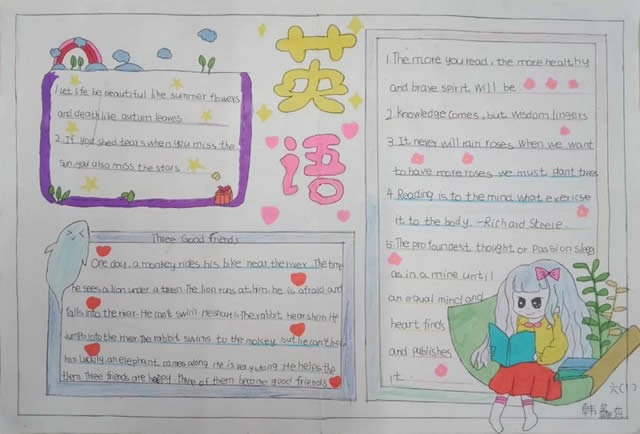 英语
1.Let life be beautiful like summer flowers
and death like autum leaves
2.If you shed tears when you miss the
sun, you also miss the stars
Three Good Friends
One day, a monkey rides his bike near the river. The time
he sees a lion under a The lion runs at him. he is afraid and
falls into the river. He can't swim. He shouts. The rabbit hears him. He
jumps into the river. The rabbit swims to the but he can't help
him luckily, an elephant comes along. He is very strong. He helps the
them Three friends are happy. three of them become good friends
1.The more you read, the more healthy
and brave spirit will be
2.knowledge comes, but wisdom lingers
3.It never will rain roses when we want
to have more roses we must trees
4.Reading is to the mind what
it to the body. -Richard Steele.
5.The profoundest thought or passion sleep
as in a mine until
an equal mind and
heart finds
and publishes
it
六(1)
韩